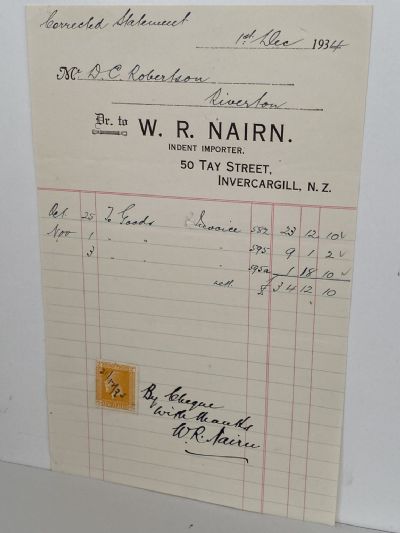 Corrected Statement
1st Dec 1934
Mr D. C. Robertson
Riverton
Dr. to W. R. NAIRN.
INDENT IMPORTER.
50 TAY STREET,
INVERCARGILL, N. Z.
Oct 25 To Goods Invoice 582 23 12 10 ✓
Nov 1 " " " 595 9 1 2 ✓
3 " " " 595a 1 18 10 ✓
nett £ 34 12 10
By Cheque
with thanks
W. R. Nairn